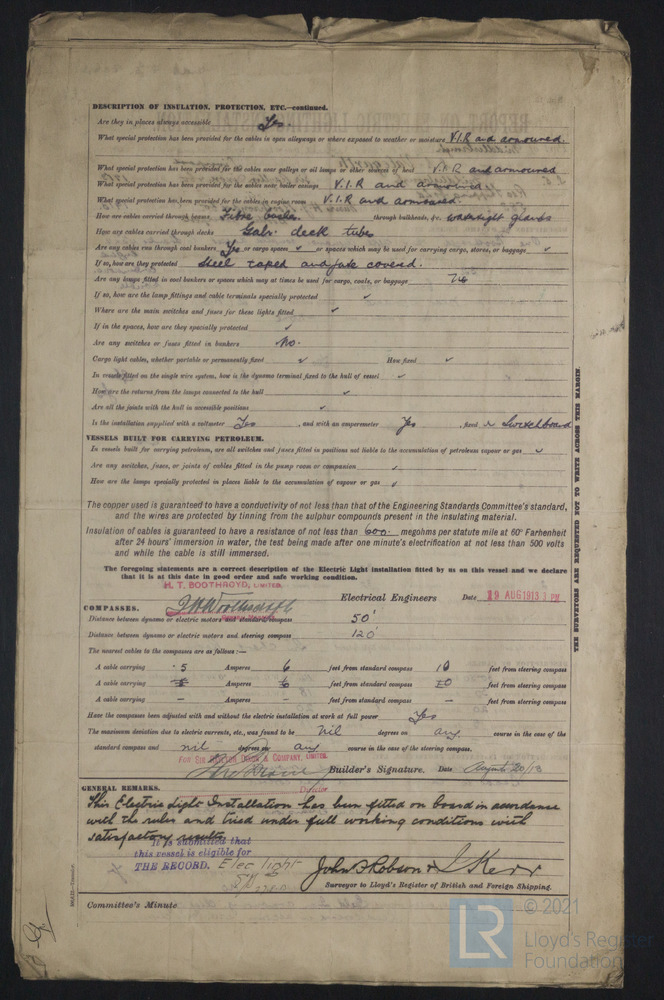 DESCRIPTION OF INSULATION, PROTECTION, ETC.—continued.
Are they in places always accessible Yes.
What special protection has been provided for the cables in open alleyways or where exposed to weather or moisture V.I.R and armoured.
What special protection has been provided for the cables near galleys or oil lamps or other sources of heat V.I.R and armoured
What special protection has been provided for the cables near boiler casings V.I.R and armoured
What special protection has been provided for the cables in engine room V.I.R and armoured.
How are cables carried through beams Fibre bushes through bulkheads, &c. watertight glands
How are cables carried through decks Galv. deck tubes
Are any cables run through coal bunkers Yes or cargo spaces ✓ or spaces which may be used for carrying cargo, stores, or baggage ✓
If so, how are they protected Steel taped and jute covered.
Are any lamps fitted in coal bunkers or spaces which may at times be used for cargo, coals, or baggage No
If so, how are the lamp fittings and cable terminals specially protected ✓
Where are the main switches and fuses for these lights fitted ✓
If in the spaces, how are they specially protected ✓
Are any switches or fuses fitted in bunkers No.
Cargo light cables, whether portable or permanently fixed ✓ How fixed ✓
In vessels fitted on the single wire system, how is the dynamo terminal fixed to the hull of vessel ✓
How are the returns from the lamps connected to the hull ✓
Are all the joints with the hull in accessible positions ✓
Is the installation supplied with a voltmeter Yes , and with an amperemeter Yes , fixed Switchboard
VESSELS BUILT FOR CARRYING PETROLEUM.
In vessels built for carrying petroleum, are all switches and fuses fitted in positions not liable to the accumulation of petroleum vapour or gas ✓
Are any switches, fuses, or joints of cables fitted in the pump room or companion ✓
How are the lamps specially protected in places liable to the accumulation of vapour or gas ✓
The copper used is guaranteed to have a conductivity of not less than that of the Engineering Standards Committee's standard,
and the wires are protected by tinning from the sulphur compounds present in the insulating material.
Insulation of cables is guaranteed to have a resistance of not less than 600. megohms per statute mile at 60° Farhenheit
after 24 hours' immersion in water, the test being made after one minute's electrification at not less than 500 volts
and while the cable is still immersed.
The foregoing statements are a correct description of the Electric Light installation fitted by us on this vessel and we declare
that it is at this date in good order and safe working condition.
H. T. BOOTHROYD, LIMITED.
Electrical Engineers Date 19 AUG 1913 1 PM
COMPASSES.
Distance between dynamo or electric motors and standard compass 50'
Distance between dynamo or electric motors and steering compass 120'
The nearest cables to the compasses are as follows:—
A cable carrying .5 Amperes 6 feet from standard compass 10 feet from steering compass
A cable carrying Amperes feet from standard compass feet from steering compass
A cable carrying – Amperes – feet from standard compass – feet from steering compass
Have the compasses been adjusted with and without the electric installation at work at full power Yes
The maximum deviation due to electric currents, etc., was found to be Nil degrees on any course in the case of the
standard compass and nil degrees on any course in the case of the steering compass.
FOR SIR RAYLTON DIXON & COMPANY, LIMITED.
Builder's Signature. Date August 20/13
Director
GENERAL REMARKS.
This Electric Light Installation has been fitted on board in accordance
with the rules and tried under full working conditions with
satisfactory results.
It is submitted that
this vessel is eligible for
THE RECORD. Elec light
John S Robson & J Kerr
Surveyor to Lloyd's Register of British and Foreign Shipping.
Committee's Minute
THE SURVEYORS ARE REQUESTED NOT TO WRITE ACROSS THIS MARGIN.
LR
© 2021
Lloyd's Register
Foundation